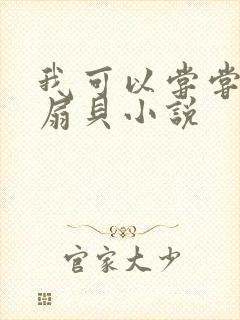 我可以尝尝
扇贝小说
官家大少